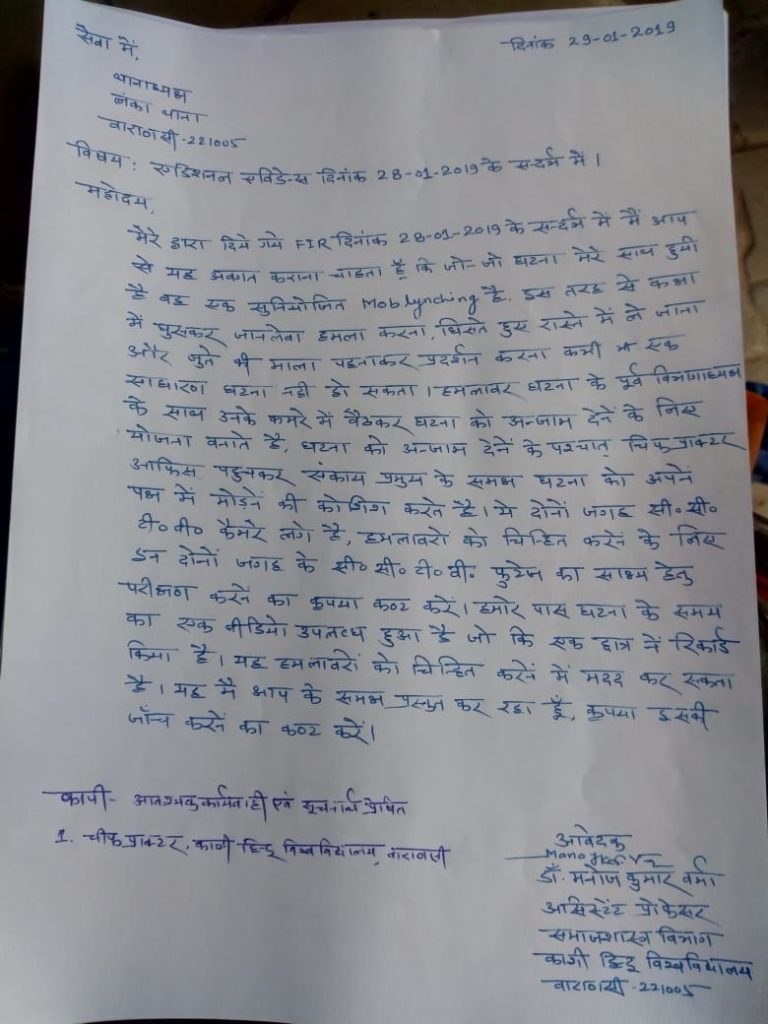 सेवा में,
दिनांक 29-01-2019
थानाध्यक्ष
लंका थाना
वाराणसी-221005
विषय: एडिशनल एविडेन्स दिनांक 28-01-2019 के सन्दर्भ में।
महोदय,
मेरे द्वारा दिये गये FIR दिनांक 28-01-2019 के सन्दर्भ में मैं आप
से यह अवगत कराना चाहता हूँ कि जो-जो घटना मेरे साथ हुयी
है वह एक सुनियोजित Moblynching है. इस तरह से कक्षा
में घुसकर जानलेवा हमला करना, घिसते हुए रास्ते में ले जाना
और जुते की माला पहनाकर प्रदर्शन करना कभी एक
साधारण घटना नही हो सकता। हमलावर घटना के पूर्व विभागाध्यक्ष
के साथ उनके कमरे में बैठकर घटना को अन्जाम देनें के लिए
योजना बनाते है, घटना को अन्जाम देनें के पश्चात् चिफ प्राक्टर
आफिस पहुचकर संकाय प्रमुख के समक्ष घटना को अपनें
पक्ष में मोड़नें की कोशिश करते है। ये दोनों जगह सी० सी०
टी० वी० कैमरे लगे है, हमलावरों को चिन्हित करनें के लिए
इन दोनों जगह के सी० सी० टी० वी० फुटेज का साक्ष्य हेतु
परीक्षण करनें का कृपया कष्ट करें। हमारे पास घटना के समय
का एक वीडियो उपलब्ध हुआ है जो कि एक छात्र नें रिकार्ड
किया है। यह हमलावरों को चिन्हित करनें में मदद कर सकता
है। यह मै आप के समक्ष प्रस्तुत कर रहा हूँ, कृपया इसकी
जाँच करनें का कष्ट करें।
कापी- आवश्यक कार्यवाही एवं सूचनार्थ प्रेषित
1. चीफ प्राक्टर, काशी हिन्दू विश्वविद्यालय, वाराणसी
आवेदक
डॉ. मनोज कुमार वर्मा
असिस्टेंट प्रोफेसर
समाजशास्त्र विभाग
काशी हिन्दू विश्वविद्यालय
वाराणसी-221005